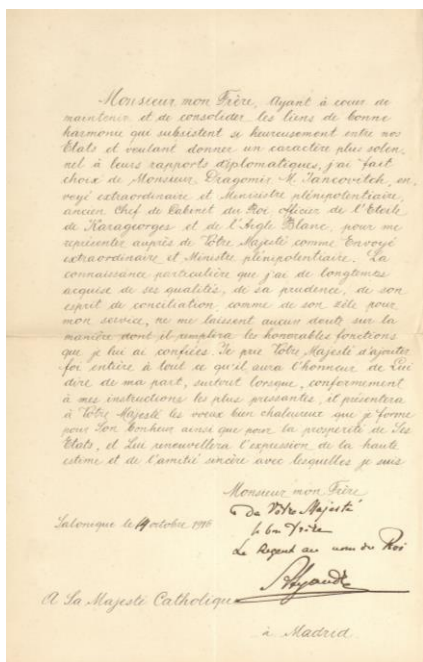 Monsieur mon Frère, Ayant à coeur de
maintenir et de consolider les liens de bonne
harmonie qui subsistent si heureusement entre nos
Etats et voulant donner un caractère plus solen-
nel à leurs rapports diplomatiques, j'ai fait
choix de Monsieur Dragomir M. Iancovitch, en-
voyé extraordinaire et Ministre plénipotentiaire,
ancien Chef de Cabinet du Roi Officier de l'Etoile
de Karageorges et de l'Aigle Blanc, pour me
représenter auprès de Votre Majesté comme Envoyé
extraordinaire et Ministre plénipotentiaire. La
connaissance particulière que j'ai de longtemps
acquise de ses qualités, de sa prudence, de son
esprit de conciliation comme de son zèle pour
mon service, ne me laissent aucun doute sur la
manière dont il remplira les honorables fonctions
que je lui ai confiées. Je prie Votre Majesté d'ajouter
foi entière à tout ce qu'il aura l'honneur de Lui
dire de ma part, surtout lorsque, conformement
à mes instructions les plus pressantes, il présentera
à Votre Majesté les voeux bien chaleureux que je forme
pour Son bonheur ainsi que pour la prosperité de Ses
Etats, et Lui renouvellera l'expression de la haute
estime et de l'amitié sincère avec lesquelles je suis
Monsieur mon Frère
De Votre Majesté
Salonique le 14 octobre 1916
le bon Frère
Le Regent au nom du Roi
A Sa Majesté Catholique
à Madrid.